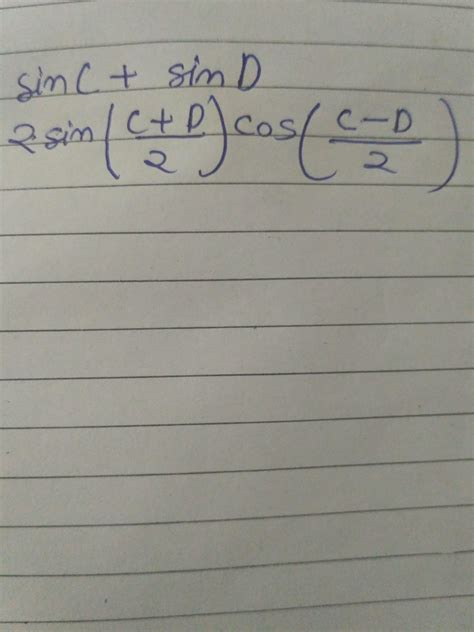 sinC + sinD
2sin(C+D/2)cos(C-D/2)